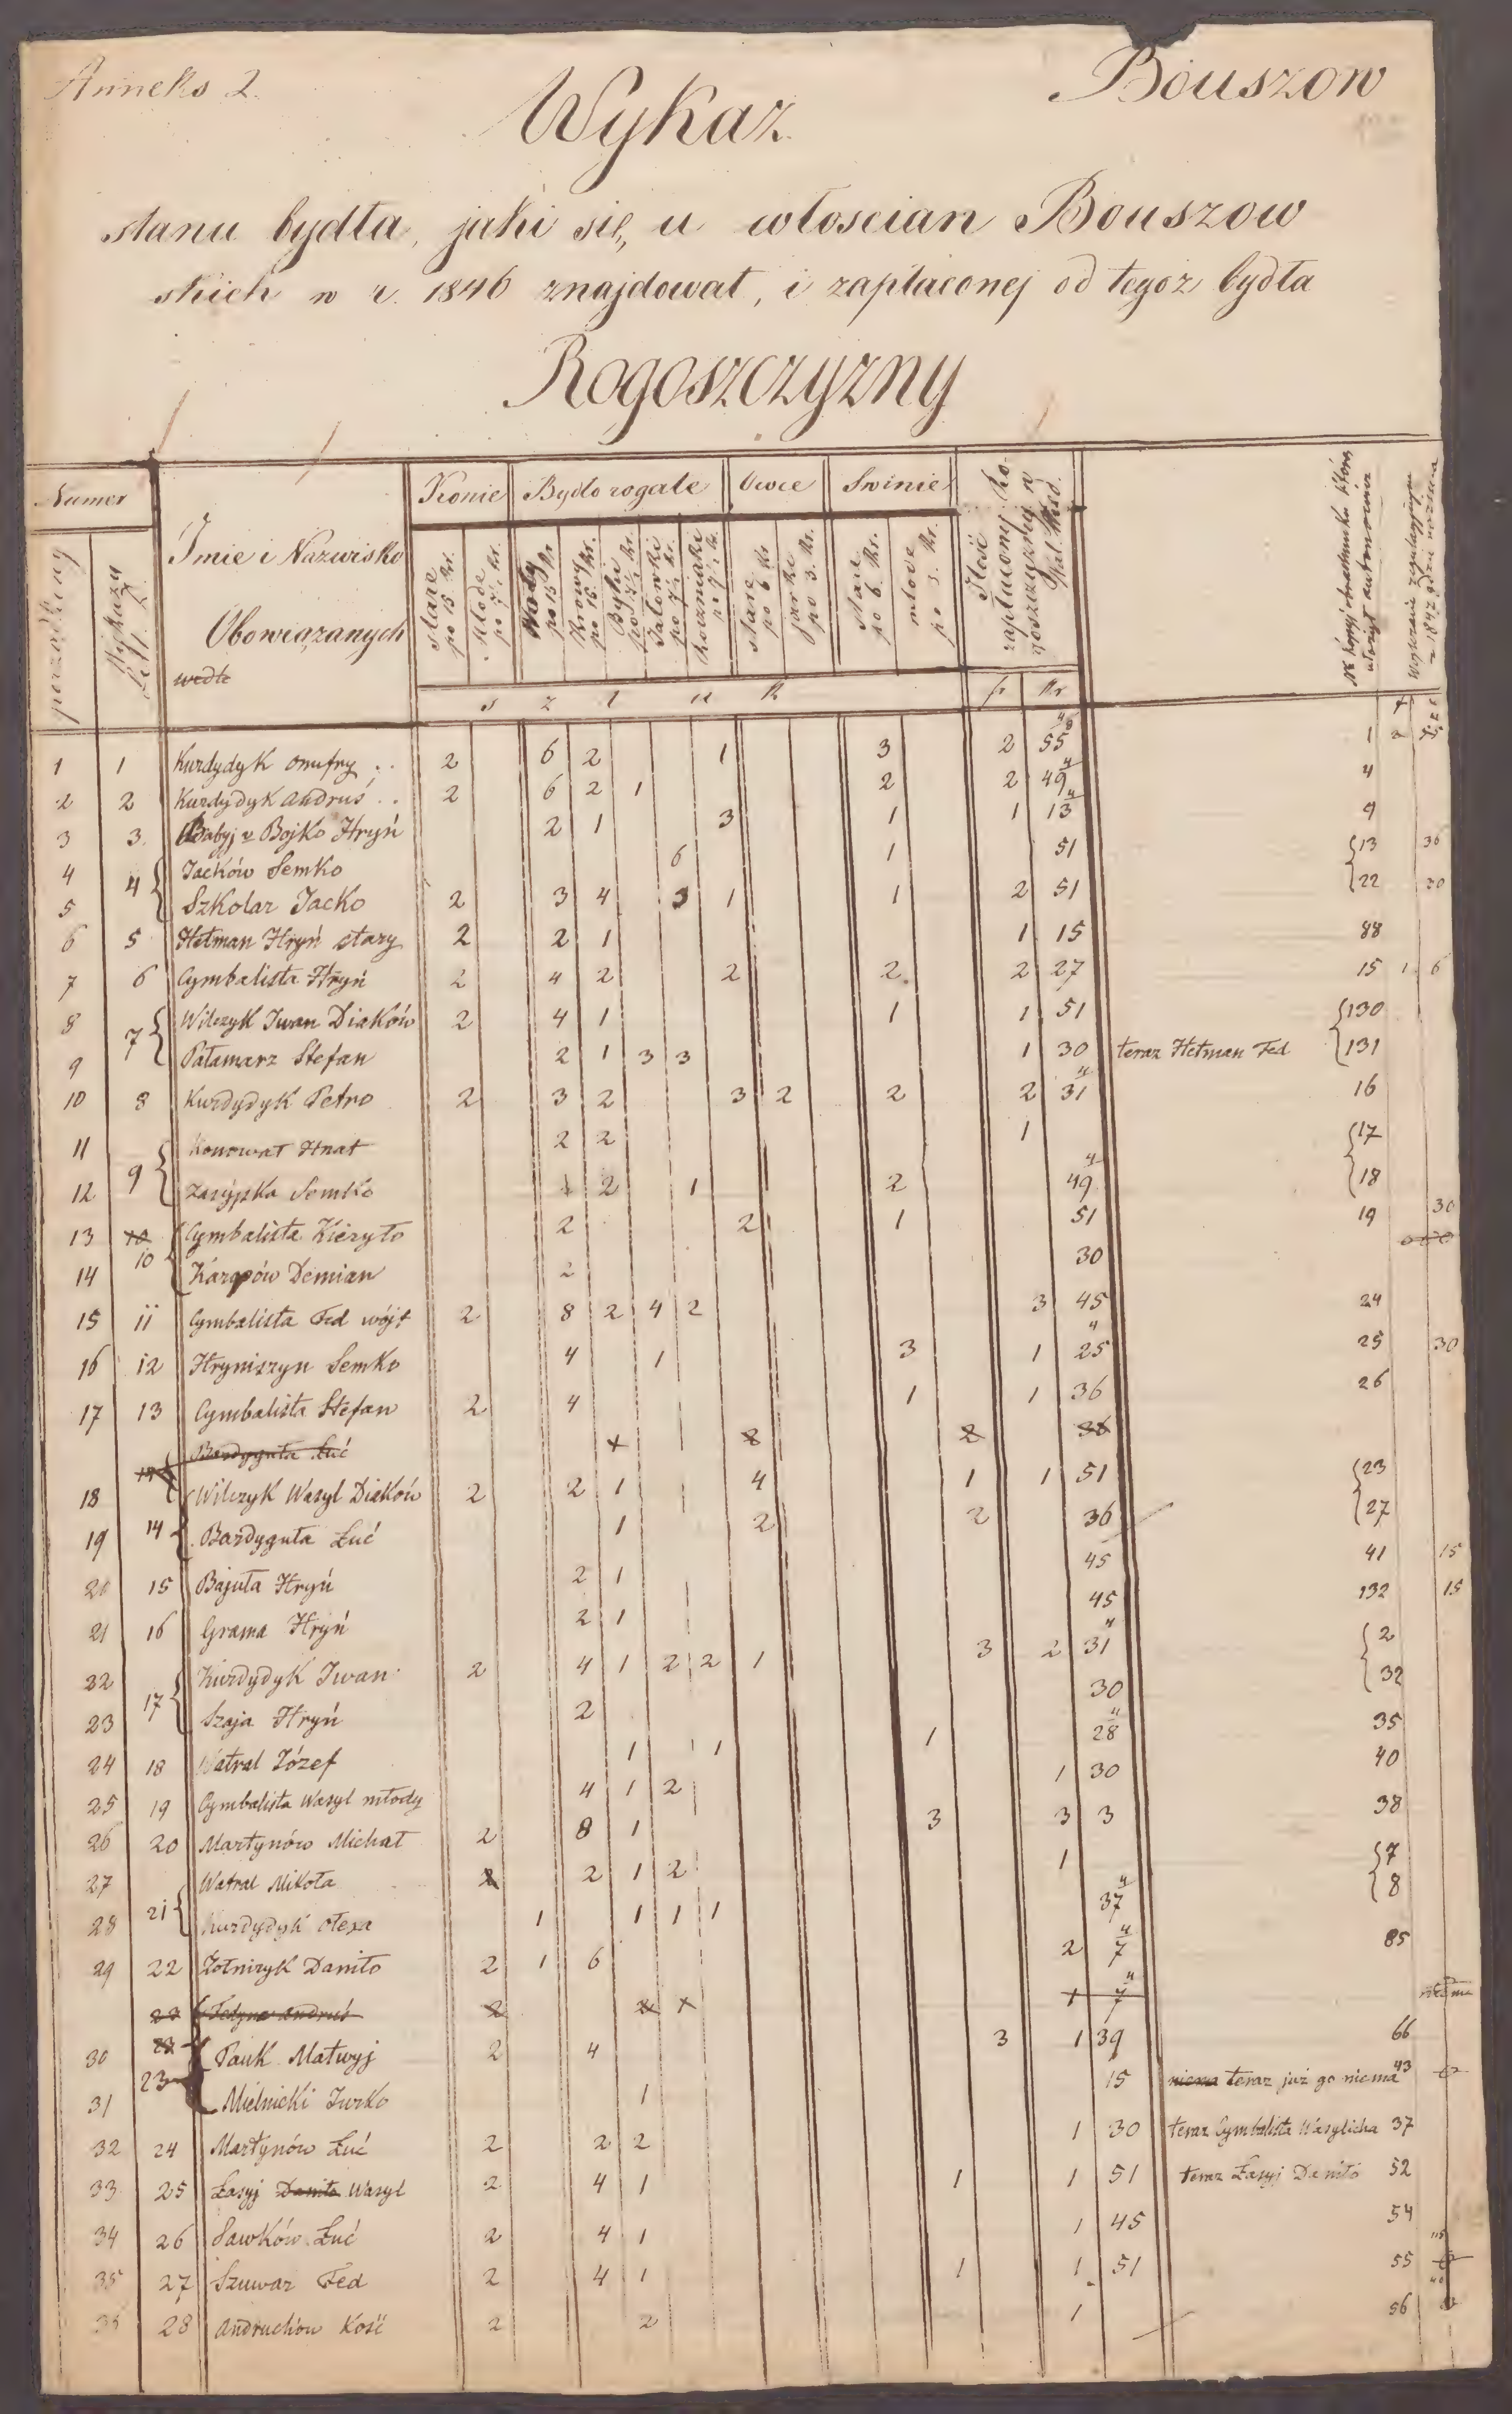 Anneks 2.
Bouszow
Wykaz
stanu bydła, jaki się u włoscian Bouszow
skich w r. 1846 znajdował, i zapłaconej od tegoż bydła
Rogoszczyzny
Numer
porządkowy
Wykazu Litt. Z.
Imie i Nazwisko
Obowiązanych
wedle
Konie
Bydło rogate
Owce
Swinie
stare po 15 Kr.
Młode po 7½ Kr.
Woły po 15 Kr
Krowy po 15 Kr.
Byki po 7½ Kr.
Jałowki po 7½ Kr.
Roczniaki po 7½ Kr.
stare po 6 Kr
jarki po 3. Kr.
stare po 6 Kr.
młode po 3. Kr.
Ilość zapłaconej Rogoszczyzny w
s z t u k
fr Kr
1 1 Kurdydyk Onufry .. 2 6 2 1 3 2 55 1
2 2 Kurdydyk Andruś .. 2 6 2 1 2 2 49 4
3 3. Babyj v Bojko Hryń 2 1 3 1 1 13 9
4 4 Jacków Semko 6 1 51 13 36
5 Szkolar Jacko 2 3 4 3 1 1 2 51 22 30
6 5 Hetman Hryń stary 2 2 1 1 15 88
7 6 Cymbalista Hryń 2 4 2 2 2 2 27 15 1 6
8 7 Wilczyk Iwan Diaków 2 4 1 1 1 51 130
9 Pałamarz Stefan 2 1 3 3 1 30 teraz Hetman Fed 131
10 8 Kurdydyk Petro 2 3 2 3 2 2 2 31 16
11 9 Konował Hnat 2 2 1 17
12 Zasypka Semko 2 1 2 49 18
13 10 Cymbalista Kieryło 2 2 1 51 19 30
14 10 Karpów Demian 2 30
15 11 Cymbalista Fed wójt 2 8 2 4 2 3 45 24
16 12 Hryniszyn Semko 4 1 3 1 25 25 30
17 13 Cymbalista Stefan 2 4 1 1 36 26
Bardyguła Łuć
18 Wilczyk Wasyl Diaków 2 2 1 4 1 1 51 23
19 14 Bardyguła Łuć 1 2 2 36 27
20 15 Bajuła Hryń 2 1 45 41 15
21 16 Grama Hryń 2 1 45 132 15
22 17 Kurdydyk Iwan 2 4 1 2 2 1 3 2 31 2
23 Szaja Hryń 2 30 32
24 18 Watral Józef 1 1 1 28 35
25 19 Cymbalista Wasyl młody 4 1 2 1 30 40
26 20 Martynów Michał 2 8 1 3 3 3 38
27 21 Watral Mikoła 2 1 2 1 7
28 Kurdydyk Olexa 1 1 1 1 37 8
29 22 Żołniryk Daniło 2 1 6 2 7 85
Fedyna Andruś
30 23 Pauk Matwyj 2 4 3 1 39 66
31 23 Mielnicki Jurko 1 15 niema teraz już go niema 43
32 24 Martynów Łuć 2 2 2 1 30 teraz Cymbalista Wasylicha 37
33 25 Łasyj Daniło Wasyl 2 4 1 1 1 51 teraz Łasyj Daniło 52
34 26 Sawków Łuć 2 4 1 1 45 54
35 27 Szuwar Fed 2 4 1 1 1 51 55
28 Andruchów Kość 2 2 1 56